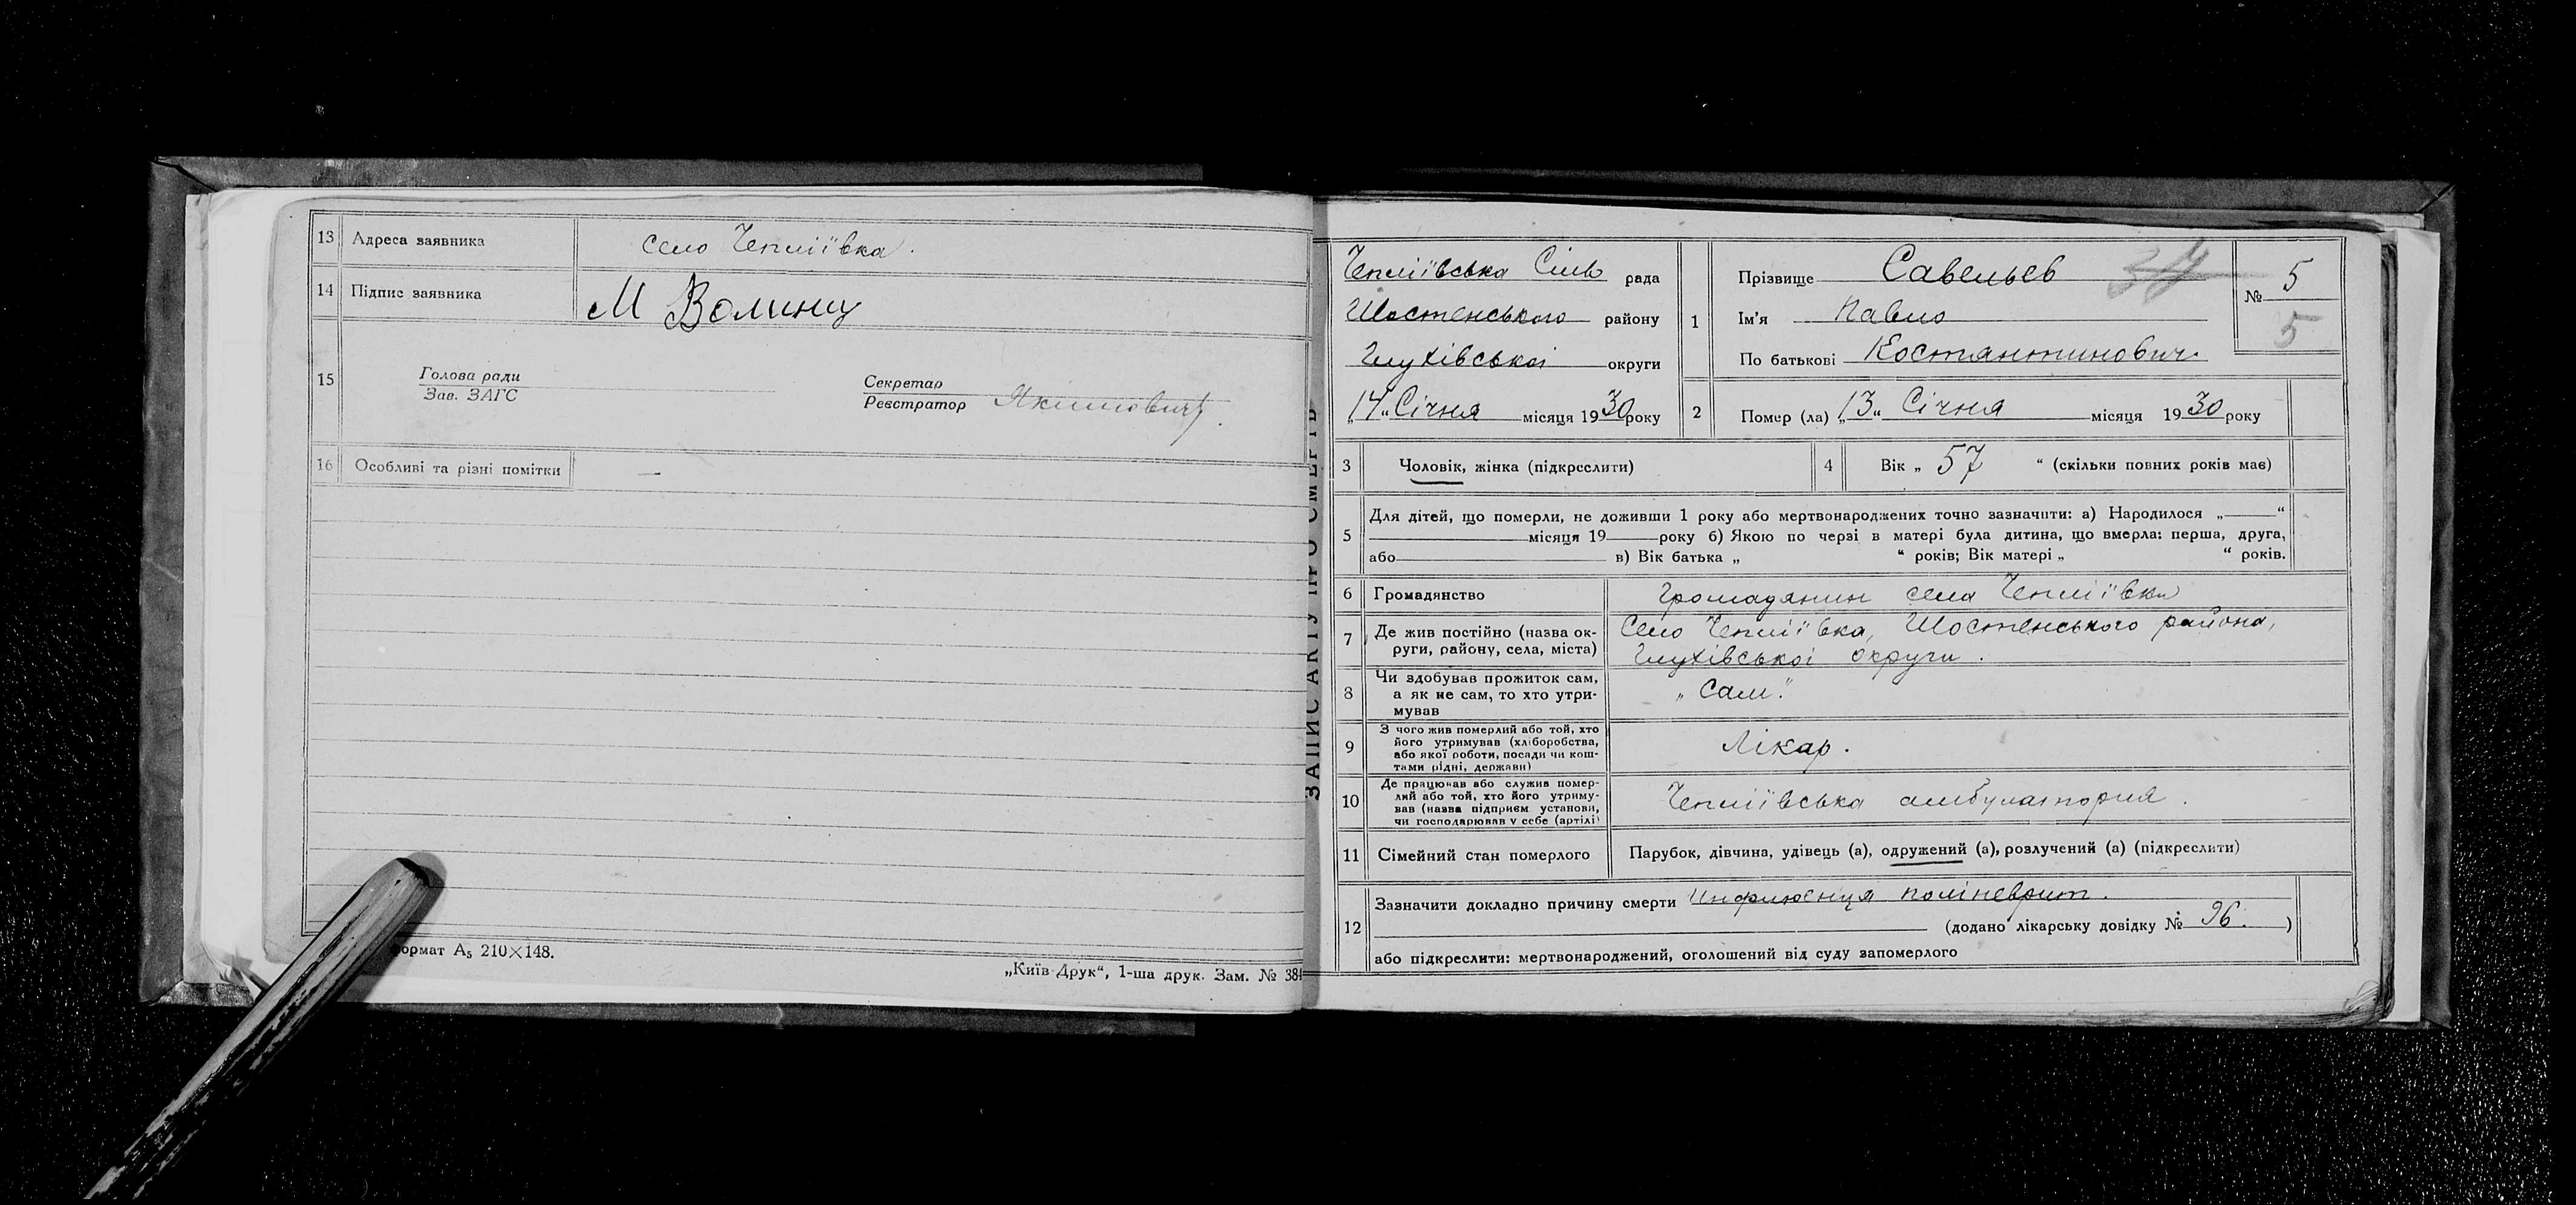 13 Адреса заявника село Чепліївка.
14 Підпис заявника М Волинц
15 Голова ради
Зав. ЗАГС
Секретар
Реєстратор Якимович
16 Особливі та різні помітки —
Формат А5 210×148.
„Київ-Друк“, 1-ша друк. Зам. № 384
ЗАПИС АКТУ ПРО СМЕРТЬ
Чепліївська Сільо рада
Шостенського району
Глухівської округи
„14“ Січня місяця 1930 року
1 Прізвище Савельев
Ім'я Павло
По батькові Костянтинович.
№ 5
5
2 Помер (ла) „13“ Січня місяця 1930 року
3 Чоловік, жінка (підкреслити)
4 Вік „ 57 “ (скільки повних років має)
5 Для дітей, що померли, не доживши 1 року або мертвонароджених точно зазначити: а) Народилося „——“
місяця 19——року б) Якою по черзі в матері була дитина, що вмерла: перша, друга,
або—— в) Вік батька „ “ років; Вік матері „ “ років.
6 Громадянство Громадянин села Чепліївки
7 Де жив постійно (назва ок-
руги, району, села, міста)
Село Чепліївка, Шостенського района,
Глухівської округи.
8 Чи здобував прожиток сам,
а як не сам, то хто утри-
мував
„Сам.“
9 З чого жив померлий або той, хто
його утримував (хліборобства,
або якої роботи, посади чи кош-
тами рідні, держави)
Лікар.
10 Де працював або служив помер-
лий або той, хто його утриму-
вав (назва підприєм установи,
чи господарював у себе (артілі)
Чепліївська амбулатория.
11 Сімейний стан померлого Парубок, дівчина, удівець (а), одружений (а), розлучений (а) (підкреслити)
12 Зазначити докладно причину смерти Инфлюенця поліневрит.
(додано лікарську довідку № 96.)
або підкреслити: мертвонароджений, оголошений від суду запомерлого